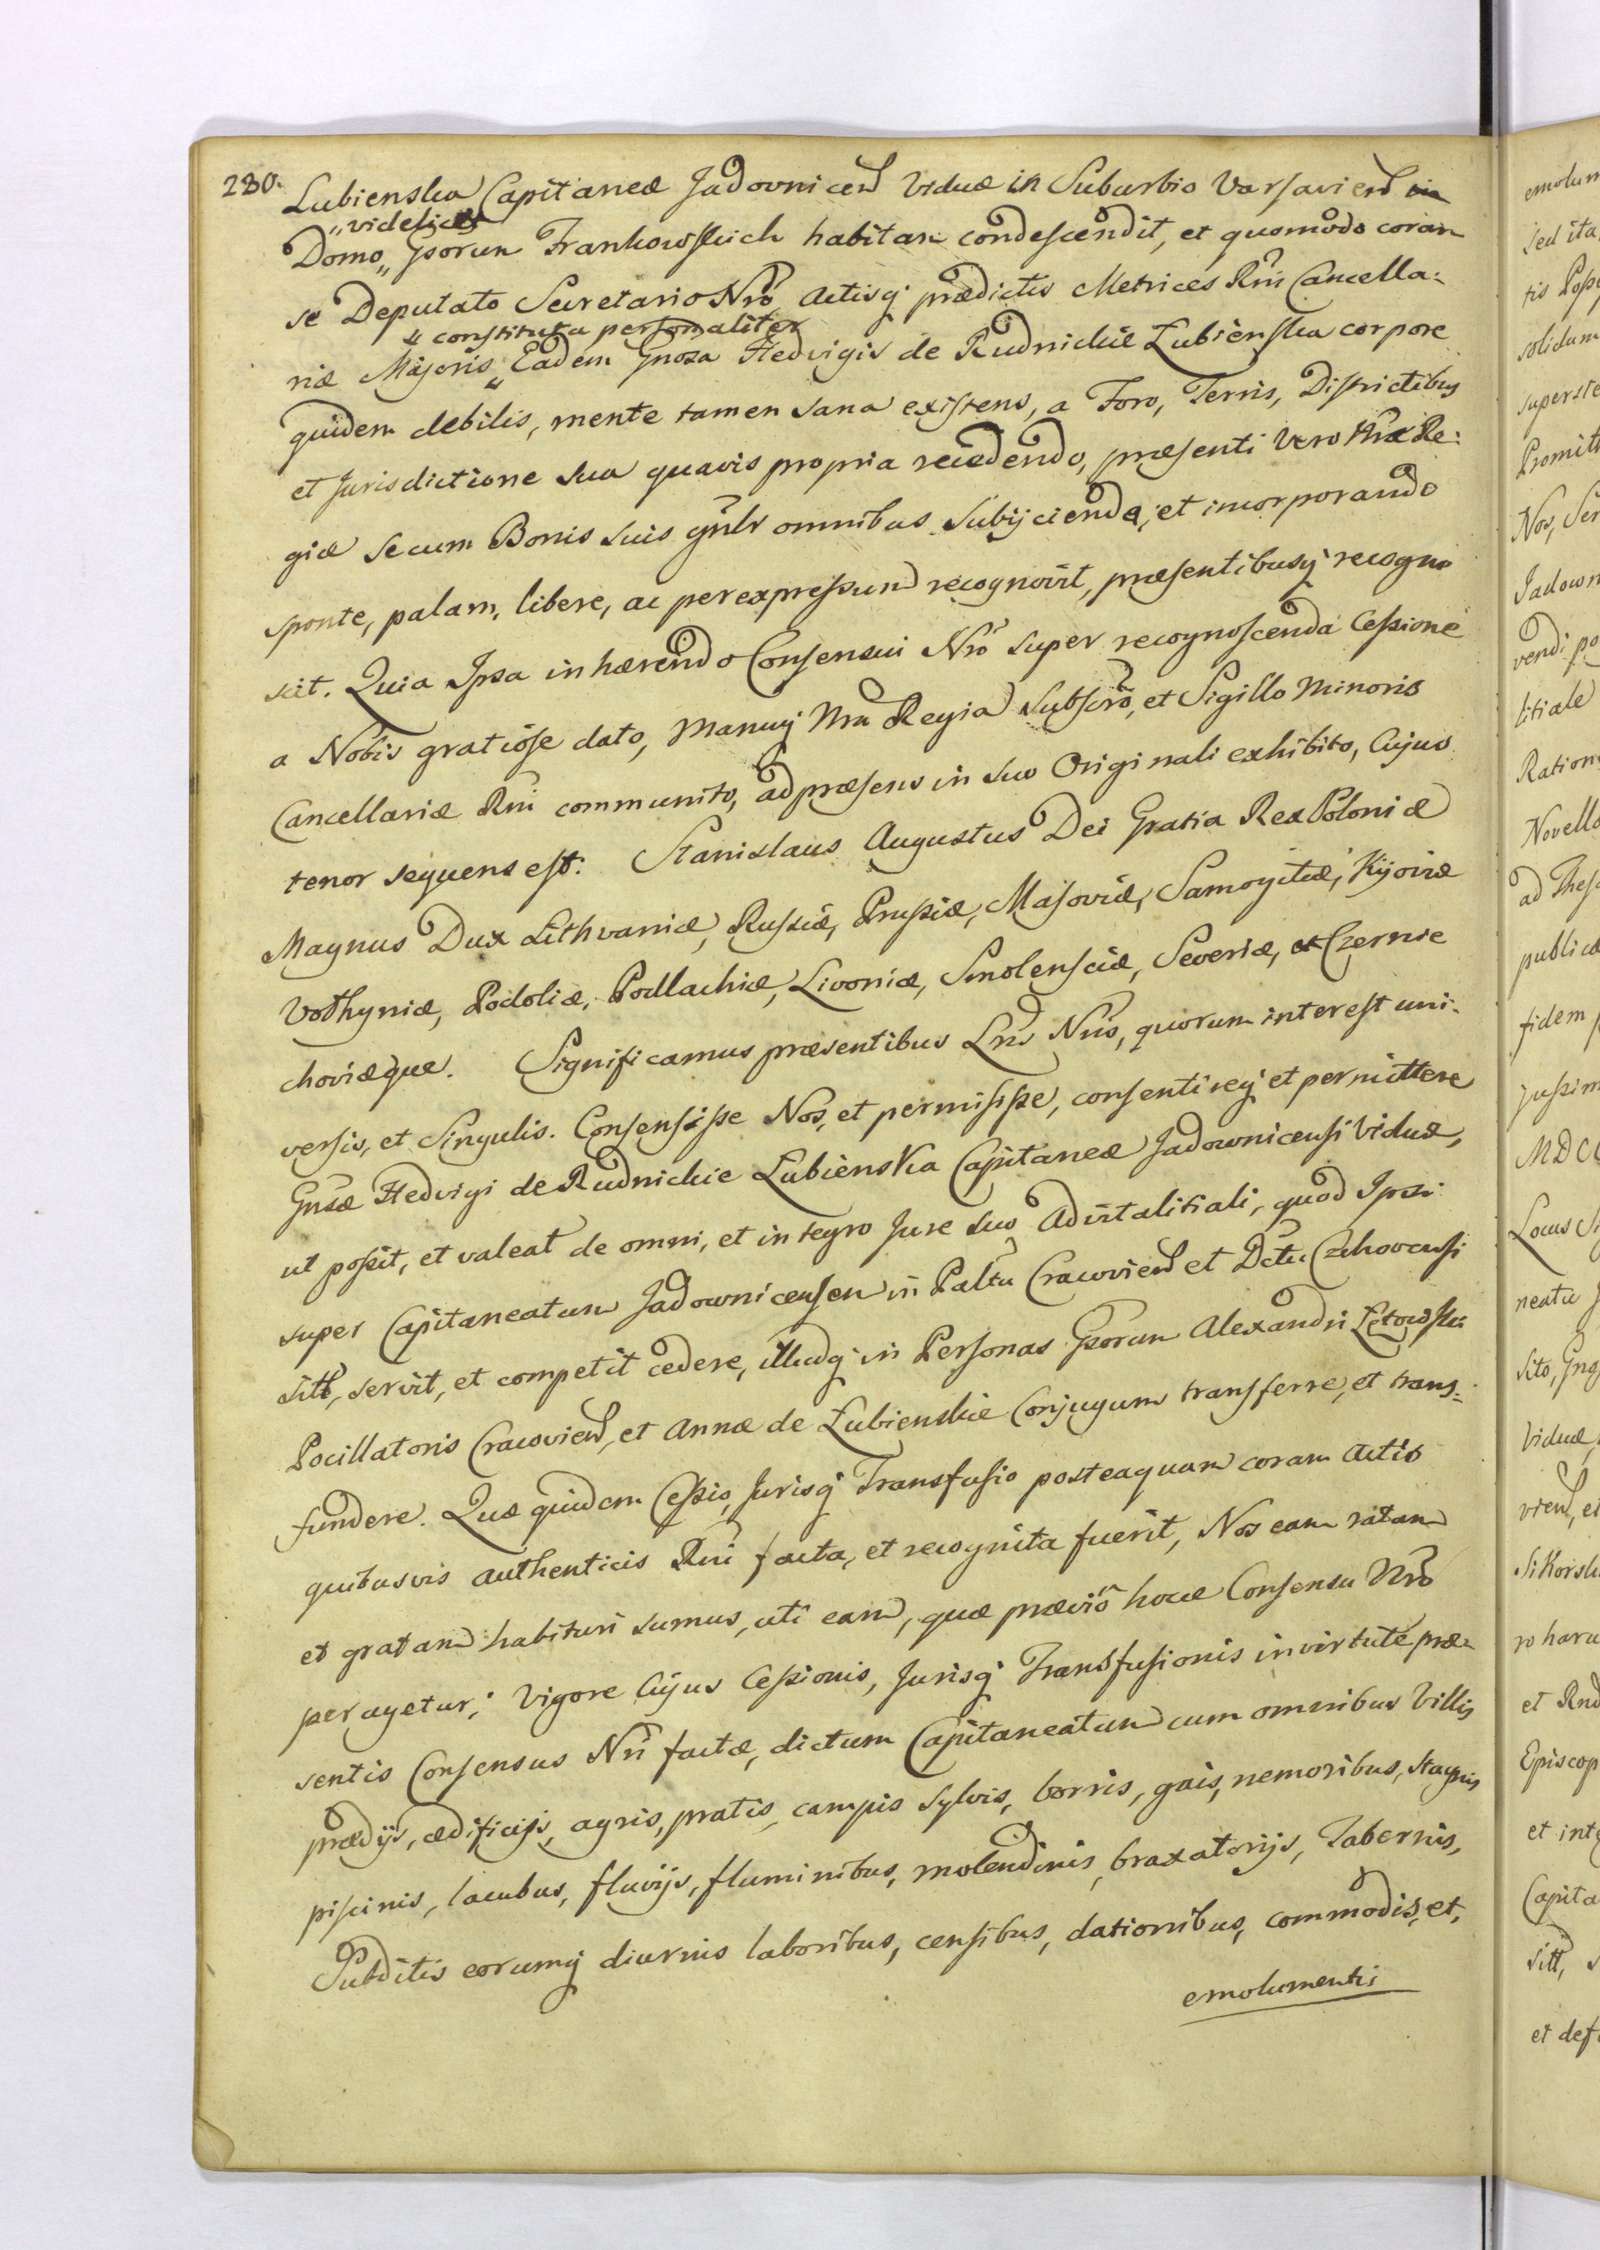 280.
Lubienska Capitaneæ Jadovnicen Viduæ in Suburbio Varsavien in
„videlicet
Domo„ Gsorum Frankowskich habitan condescendit, et quomodo coram
se Deputato Secretario Nrõ Actisq prædictis Metrices Rñi Cancella:
„ constituta personaliter
riæ Majoris„ Eadem Gnosa Hedvigis de Rudnickie Łubienska corpore
quidem debilis, mente tamen sana existens, a Foro, Terris, Districtibus
et Jurisdictione sua quavis propria recedendo, præsenti vero Re:
giæ se cum Bonis suis gñlr omnibus subijciendo, et incorporando
sponte, palam, libere, ac per expressum recognovit, præsentibusq recogno
scit. Quia Ipsa inhærendo Consensui Nrõ super recognoscenda Cessione
a Nobis gratiose dato, Manuq Nra Regia Subscrõ, et Sigillo Minoris
Cancellariæ Rñi communito, ad præsens in suo Originali exhibito, Cujus
tenor sequens est: Stanislaus Augustus Dei Gratia Rex Poloniæ
Magnus Dux Lithvaniæ, Russiæ, Prussiæ, Masoviæ, Samogitiæ, Kijoviæ
Volhyniæ, Podoliæ, Podlachiæ, Livoniæ, Smolensciæ, Severiæ, et Czernie
choviæque. Significamus præsentibus Lris Nris, quorum interest uni:
versis, et Singulis. Consensisse Nos, et permisisse, consentireq et permittere
Gnsæ Hedvigi de Rudnickie Łubienska Capitaneæ Jadownicensi Viduæ,
ut possit, et valeat de omni, et integro Jure suo advitalitiali, quod Ipsi
super Capitaneatum Jadownicensem in Paltu Cracovien et Dctu Czchovensi
sitt, servit, et competit cedere, illudq in Personas Gsorum Alexandri Łętowski
Pocillatoris Cracovien, et Annæ de Łubienskie Conjugum transferre, et trans:
fundere. Quæ quidem Cessio, Jurisq Transfusio posteaquam coram Actis
quibusvis authenticis Rñi facta, et recognita fuerit, Nos eam ratam
et gratam habituri sumus, uti eam, quæ prævio hocce Consensu Nrõ
peragetur; Vigore Cujus Cessionis, Jurisq Transfusionis in virtute præ:
sentis Consensus Nri factæ, dictum Capitaneatum cum omnibus Villis
prædijs, ædificijs, agris, pratis, campis sylvis, borris, gais, nemoribus, stagnis
piscinis, lacubus, fluvijs, fluminibus, molendinis, braxatorijs, Tabernis,
Subditis eorumq diurnis laboribus, censibus, dationibus, commodis, et
emolumentis